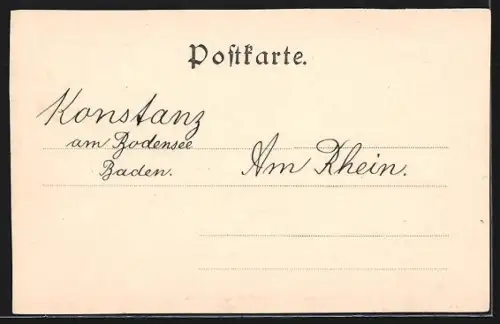 Postkarte.
Konstanz
am Bodensee
Baden.
Am Rhein.